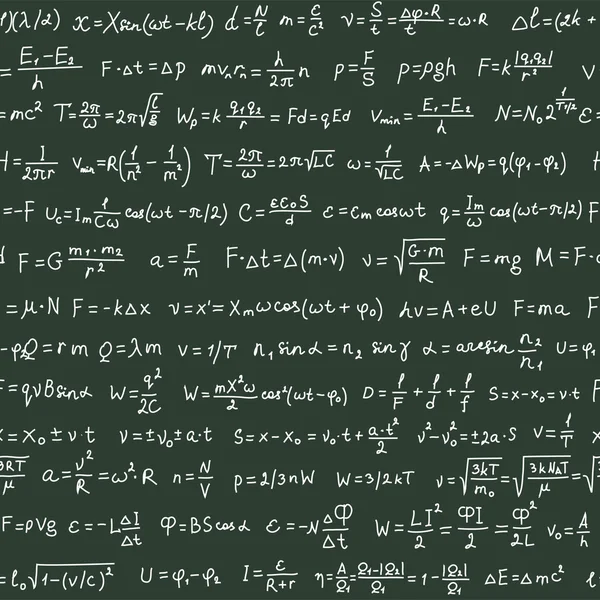 1)(λ/2) x = Xsin(ωt-kl) d = N/l m = ε/c² ν = S/t = Δφ·R/t = ω·R Δl = (2k +
= E₁-E₂/h F·Δt = Δp mvₙrₙ = h/2π n p = F/S p = ρgh F = k |q₁q₂|/r² V
= mc² T = 2π/ω = 2π√(l/g) Wₚ = k q₁q₂/r = Fd = qEd νmin = E₁-E₂/h N = N₀2^(1/T1/2) ε =
H = I/2πr νmin = R(1/n² - 1/m²) T = 2π/ω = 2π√LC ω = 1/√LC A = -ΔWₚ = q(φ₁-φ₂)
= -F U_c = Iₘ 1/Cω cos(ωt-π/2) C = εε₀S/d ε = εm cosωt q = Iₘ/ω cos(ωt-π/2) F
F = G m₁·m₂/r² a = F/m F·Δt = Δ(m·v) ν = √(G·m/R) F = mg M = F·
= μ·N F = -kΔx ν = x' = Xₘωcos(ωt+φ₀) hν = A + eU F = ma F
-φ₂ Q = rm Q = λm ν = 1/T n₁ sinα = n₂ sinγ α = arcsin n₂/n₁ U = φ₁
F = qνBsinα W = q²/2C W = mX²ω/2 cos²(ωt-φ₀) D = 1/F = 1/d + 1/f S = x-x₀ = v·t F
x = x₀ ± v·t ν = ±ν₀ ± a·t S = x-x₀ = ν₀·t + a·t²/2 ν²-ν₀² = ±2a·S ν = 1/T x
3RT/μ a = ν²/R = ω²·R n = N/V p = 2/3nW W = 3/2kT ν = √(3kT/m₀) = √(3kNAT/μ) = √
F = ρVg ε = -L ΔI/Δt Φ = BScosα ε = -N ΔΦ/Δt W = LI²/2 = ΦI/2 = Φ²/2L ν₀ = A/h
= l₀√(1-(v/c)²) U = φ₁-φ₂ I = ε/R+r η = A/Q₁ = Q₁-|Q₂|/Q₁ = 1-|Q₂|/Q₁ ΔE = Δmc²